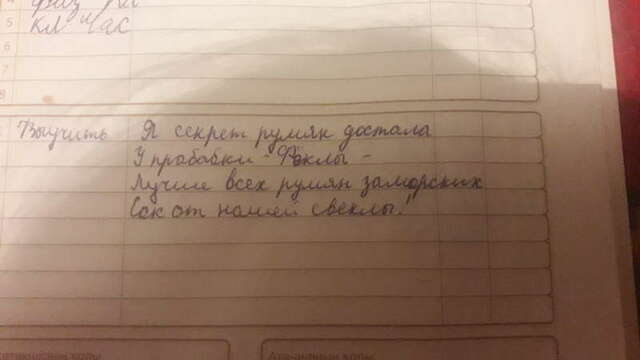 4 физ ра
5 кл час
6
7
8
Выучить Я секрет румян достала
У прабабки - Фёклы -
Лучше всех румян заморских
Сок от нашей свеклы!